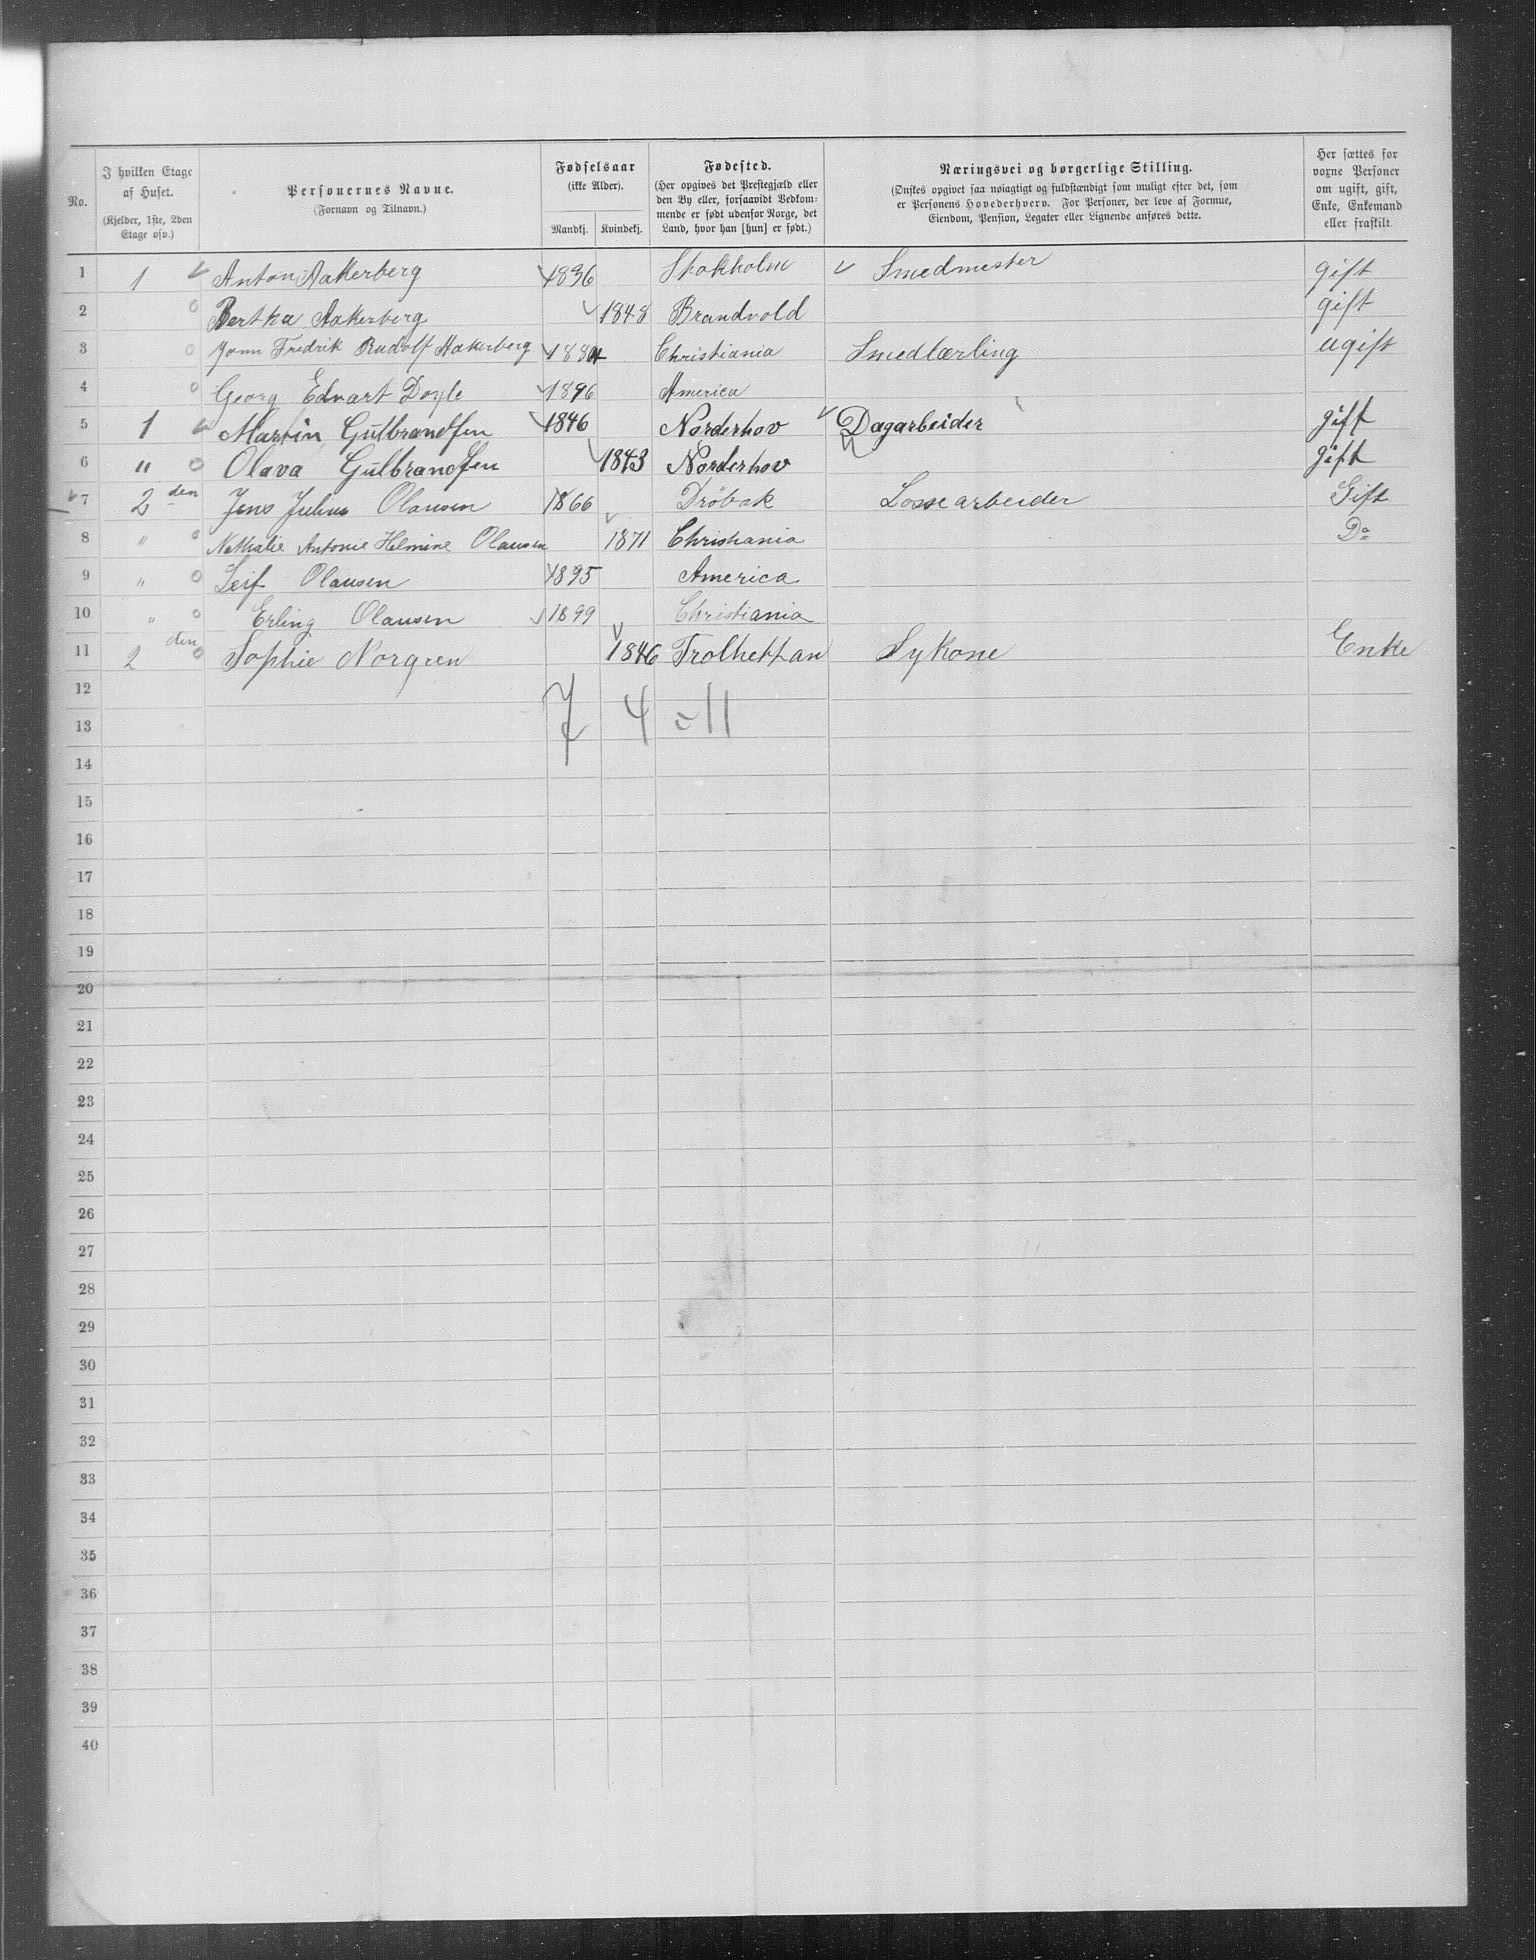 No.
I hvilken Etage
af Huset.
(Kjelder, 1ste, 2den
Etage osv.)
Personernes Navne.
(Fornavn og Tilnavn.)
Fødselsaar
(ikke Alder).
Mandkj. Kvindekj.
Fødested.
(Her opgives det Prestegjæld eller
den By eller, forsaavidt Vedkom-
mende er født udenfor Norge, det
Land, hvor han [hun] er født.)
Næringsvei og borgerlige Stilling.
(Ønskes opgivet saa nøiagtigt og fuldstændigt som muligt efter det, som
er Personens Hovederhverv. For Personer, der leve af Formue,
Eiendom, Pension, Legater eller Lignende anføres dette.
Her sættes for
voxne Personer
om ugift, gift,
Enke, Enkemand
eller fraskilt.
1 1 Anton Aakerberg 1836 Stokholm Smedmester gift
2 Bertha Aakerberg 1848 Brandvold gift
3 Fredrik Rudolf Aakerberg 1884 Christiania Smedlærling ugift
4 Georg Edvart Doyle 1896 America
5 1 Martin Gulbrandsen 1846 Norderhov Dagarbeider gift
6 " Olava Gulbrandsen 1843 Norderhov gift
7 2den Jens Julius Olausen 1866 Drøbak Lossearbeider Gift
8 " Nathalie Antonie Helmine Olausen 1871 Christiania Do
9 " Leif Olausen 1895 America
10 " Erling Olausen 1899 Christiania
11 2den Sophie Norgren 1846 Trolhettan Sykone Enke
12
7 4 = 11
13
14
15
16
17
18
19
20
21
22
23
24
25
26
27
28
29
30
31
32
33
34
35
36
37
38
39
40